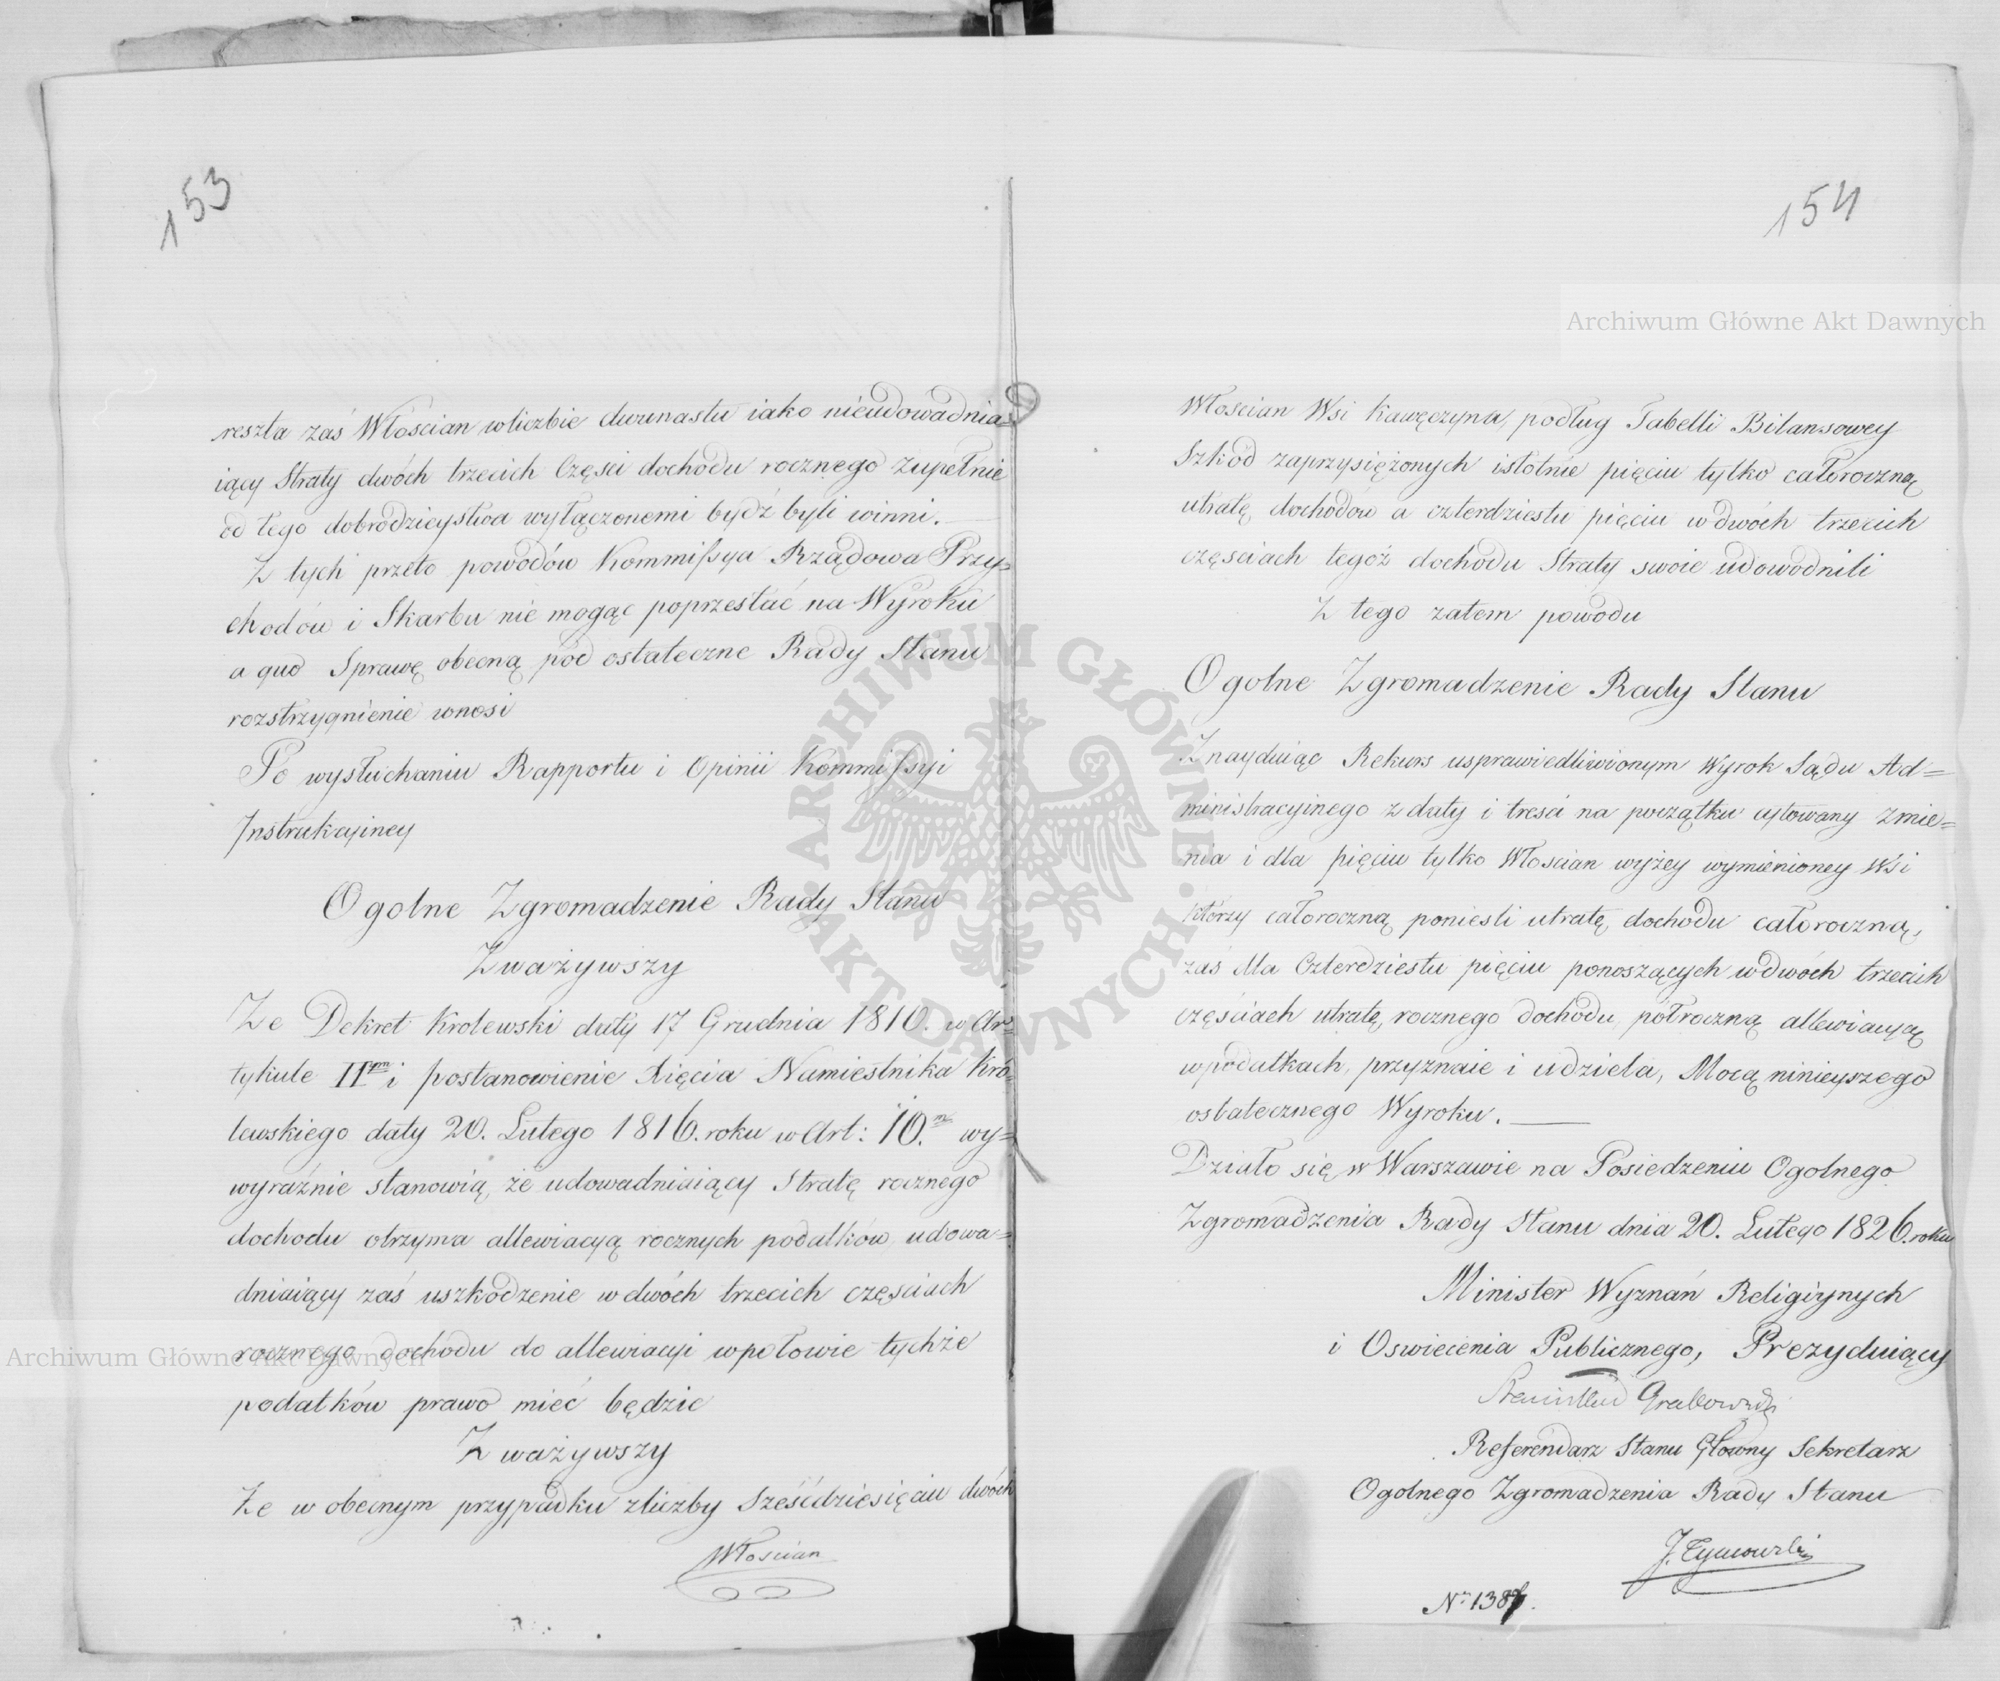 153
reszta zaś Włościan w liczbie dwunastu iako nieudowadnia=
iący Straty dwóch trzecich Części dochodu rocznego zupełnie
od tego dobrodzieystwa wyłączonemi bydź byli winni.
Z tych przeto powodów Kommissya Rządowa Przy=
chodów i Skarbu nie mogąc poprzestać na Wyroku
a quo Sprawę obecną pod ostateczne Rady Stanu
rozstrzygnienie wnosi
Po wysłuchaniu Rapportu i Opinii Kommissyi
Instrukcyiney
Ogolne Zgromadzenie Rady Stanu
Zważywszy
Że Dekret Krolewski daty 17 Grudnia 1810. w Ar=
tykule II i postanowienie Xięcia Namiestnika Kró=
lewskiego daty 20. Lutego 1816. roku w Art: 10. wy=
wyraźnie stanowią, że udowadniaiący Stratę rocznego
dochodu otrzyma allewiacyą rocznych podatków, udowa=
dniaiący zaś uszkodzenie w dwóch trzecich częściach
rocznego dochodu do allewiacyi w połowie tychże
podatków prawo mieć będzie
Zważywszy
Że w obecnym przypadku z liczby Sześćdziesięciu dwóch
Włoscian
154
Włoscian Wsi Kawęczyna, podług Tabelli Bilansowey
Szkód zaprzysiężonych istotnie pięciu tylko całoroczną
utratę dochodów a czterdziestu pięciu w dwóch trzecich
częściach tegoż dochodu Straty swoie udowodnili
Z tego zatem powodu
Ogolne Zgromadzenie Rady Stanu
Znayduiąc Rekurs usprawiedliwionym Wyrok Sądu Ad=
ministracyinego z daty i tresci na początku cytowany zmie=
nia i dla pięciu tylko Włoscian wyżey wymienioney Wsi
którzy całoroczną ponieśli utratę, dochodu całoroczną,
zaś dla Czterdziestu pięciu ponoszących w dwóch trzecich
częściach utratę, rocznego dochodu, półroczną allewiacyą
w podatkach, przyznaie i udziela, Mocą ninieyszego
ostatecznego Wyroku.
Działo się w Warszawie na Posiedzeniu Ogolnego
Zgromadzenia Rady Stanu dnia 20. Lutego 1826. roku
Minister Wyznań Religiynych
i Oswiecenia Publicznego, Prezyduiący
Stanisław Grabowski
Referendarz Stanu Głowny Sekretarz
Ogolnego Zgromadzenia Rady Stanu
J. Tymowski
Archiwum Główne Akt Dawnych
Archiwum Główne Akt Dawnych
ARCHIWUM GŁÓWNE · AKT DAWNYCH ·